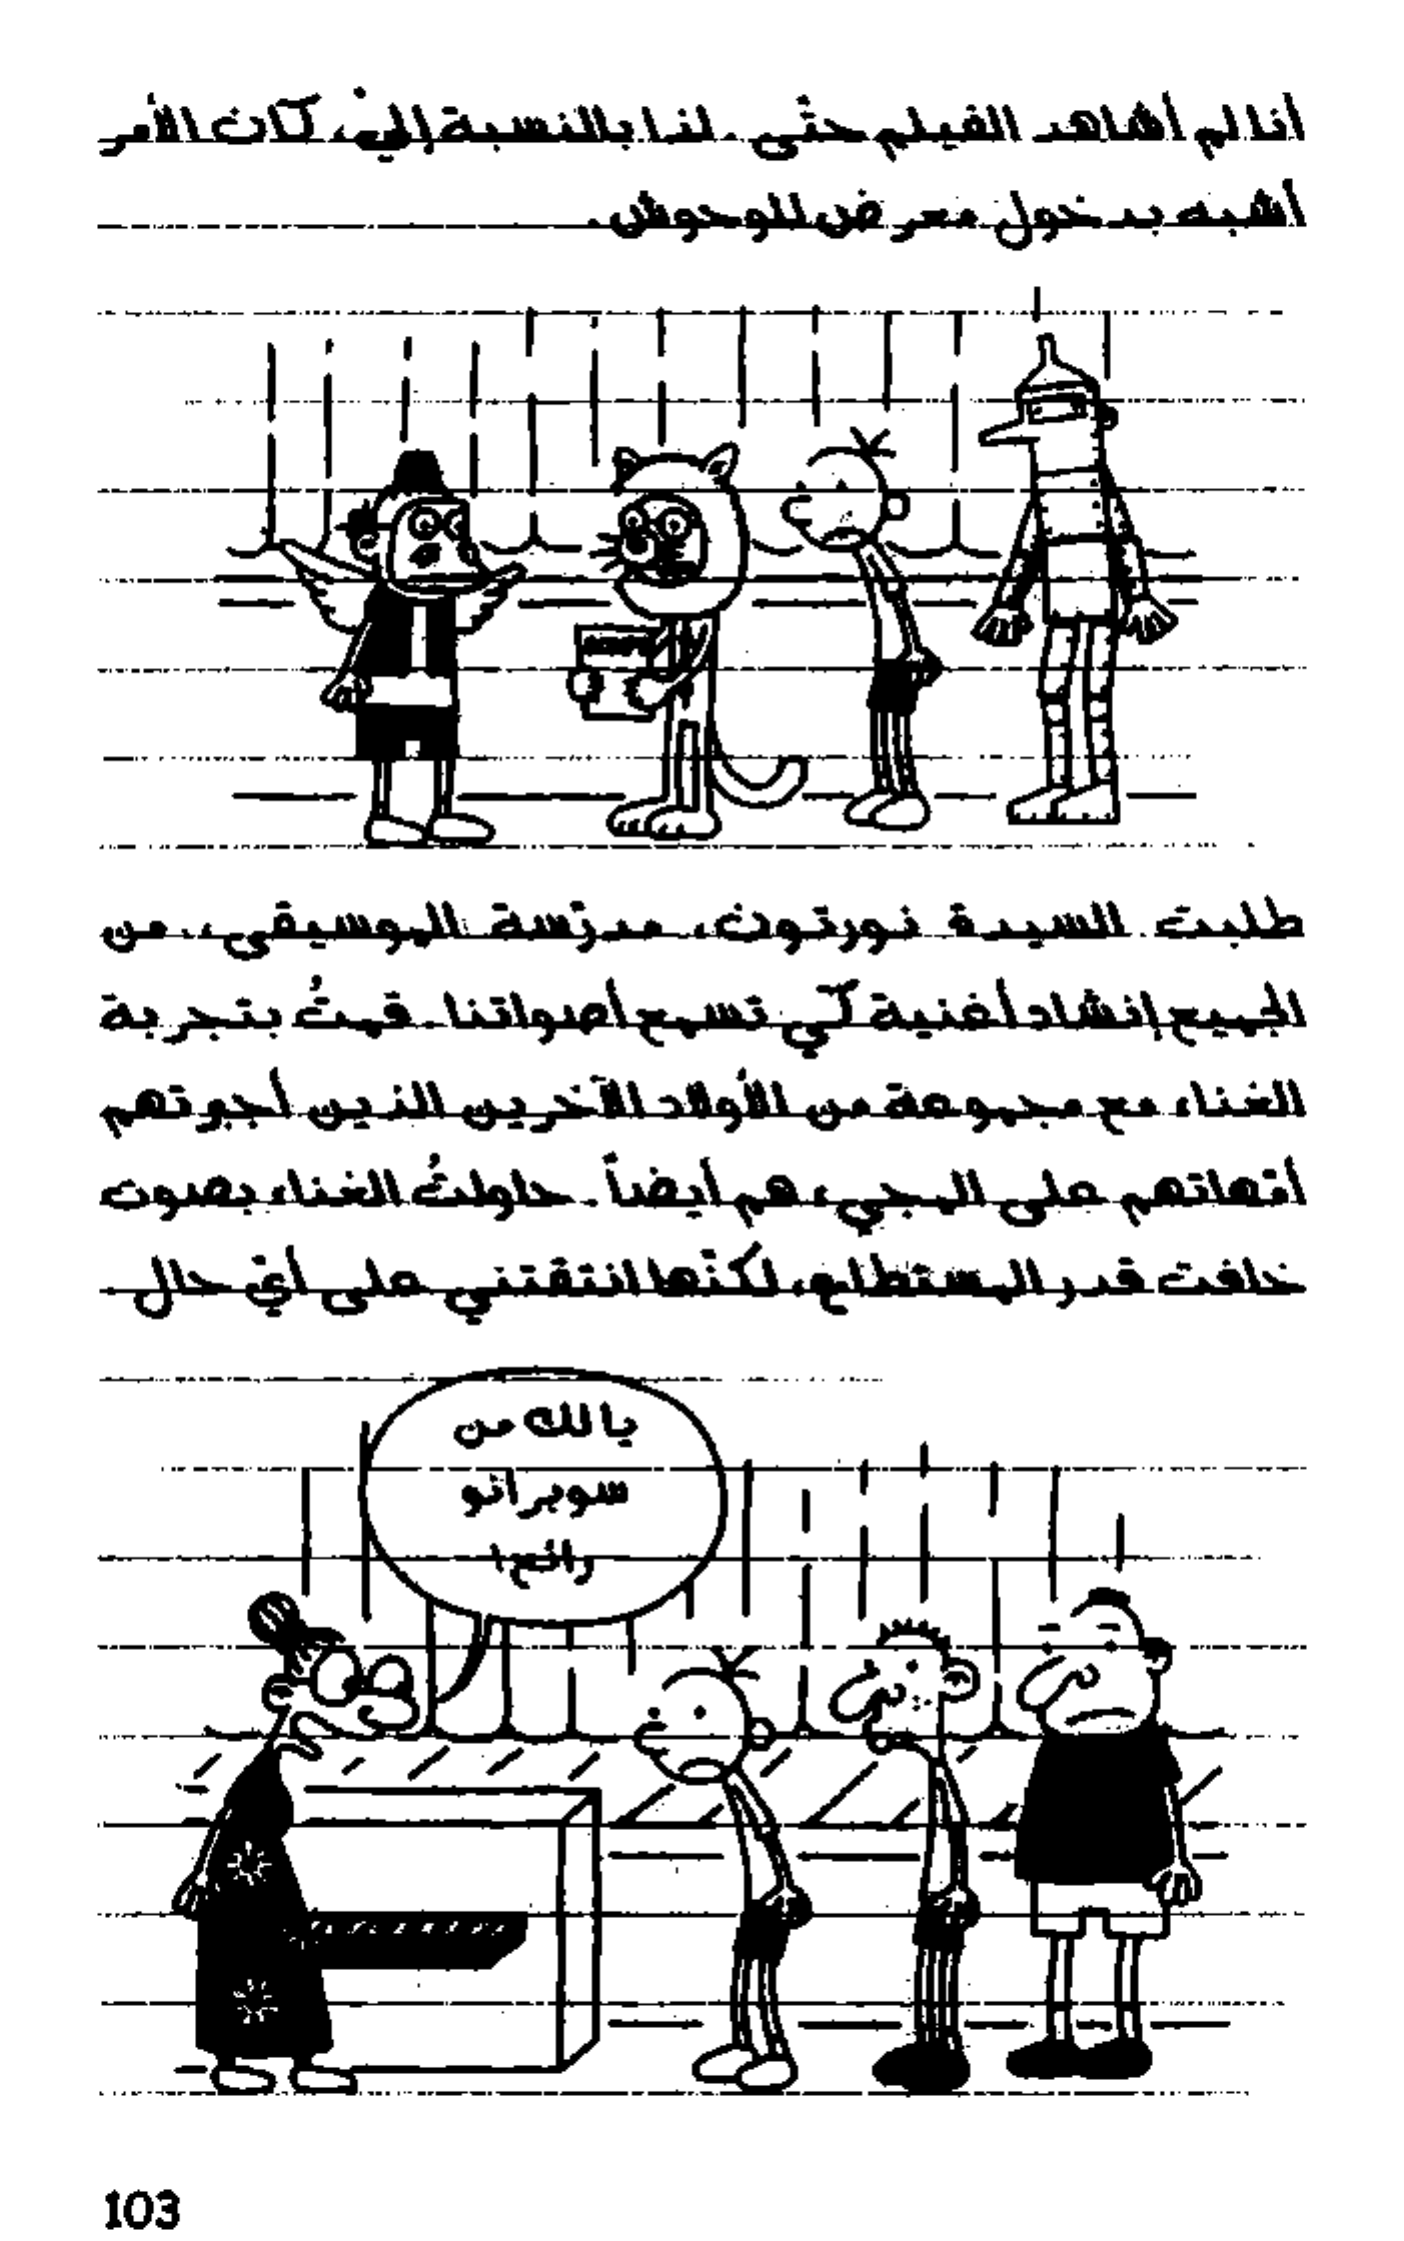 أنا لم أشاهد الفيلم حتّى. لذا بالنسبة إليّ، كان الأمر
أشبه بدخول معرض للوحوش.
طلبت السيدة نورتون، مدرّسة الموسيقى، من
الجميع إنشاد أغنية كي تسمع أصواتنا. قمتُ بتجربة
الغناء مع مجموعة من الأولاد الآخرين الذين أجبرتهم
أمّهاتهم على المجيء هم أيضاً. حاولتُ الغناء بصوت
خافت قدر المستطاع، لكنّها انتقتني على أيّ حال.
يا لك من
سوبرانو
رائع!
103